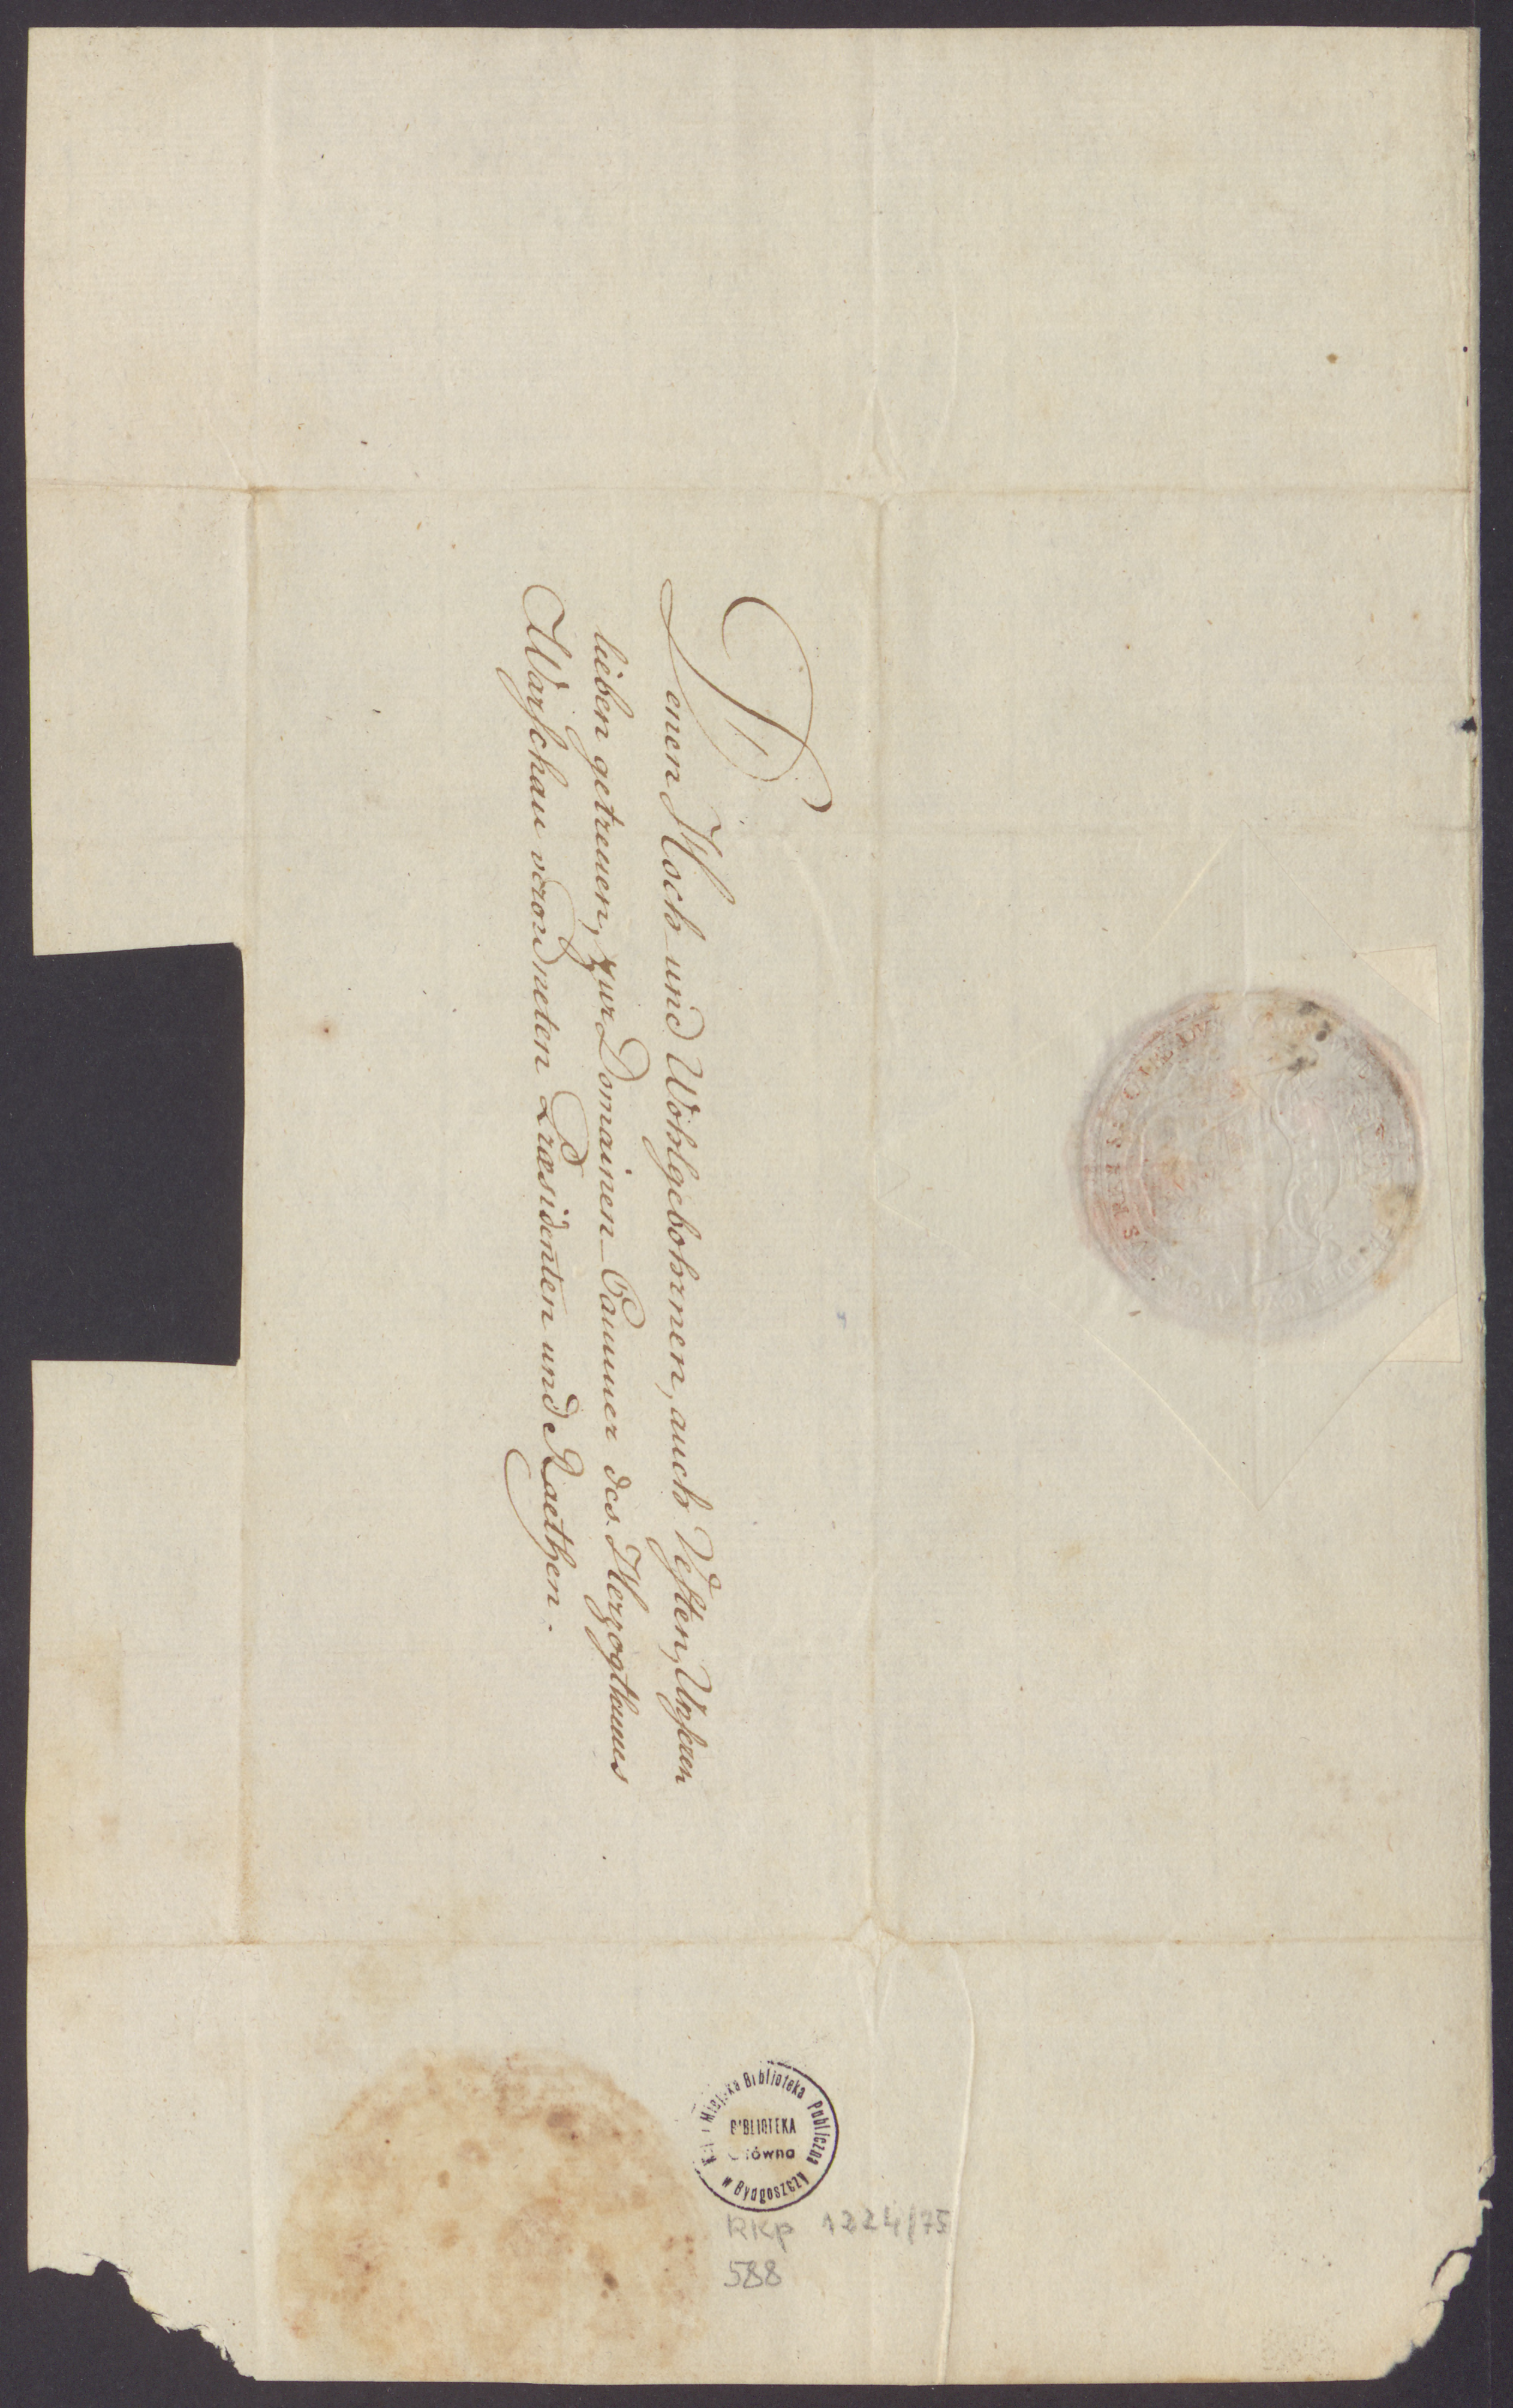 Denen Hoch und Wohlgebohrnen, auch Vesten, Unseren
lieben getreuen, zur Domainen-Cammer des Herzogthums
Warschau verordneten Præsidenten und Raethen.
Miejska Biblioteka Publiczna
w Bydgoszczy
BIBLIOTEKA
Główna
RKp 1224/75
588